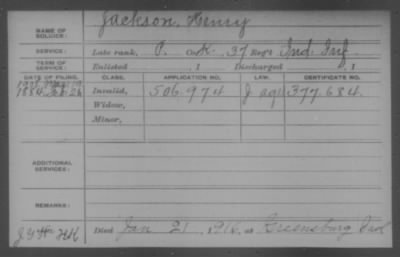 NAME OF SOLDIER: Jackson, Henry
SERVICE: Late rank, P. Co. K. 37 Reg't Ind. Inf.
TERM OF SERVICE: Enlisted , 1 Discharged , 1
DATE OF FILING. CLASS. APPLICATION NO. LAW. CERTIFICATE NO.
1884 Invalid, 506.974 J 377.684.
Widow,
Minor,
ADDITIONAL SERVICES:
REMARKS:
Died Jan 21, 1916, at Greensburg Ind